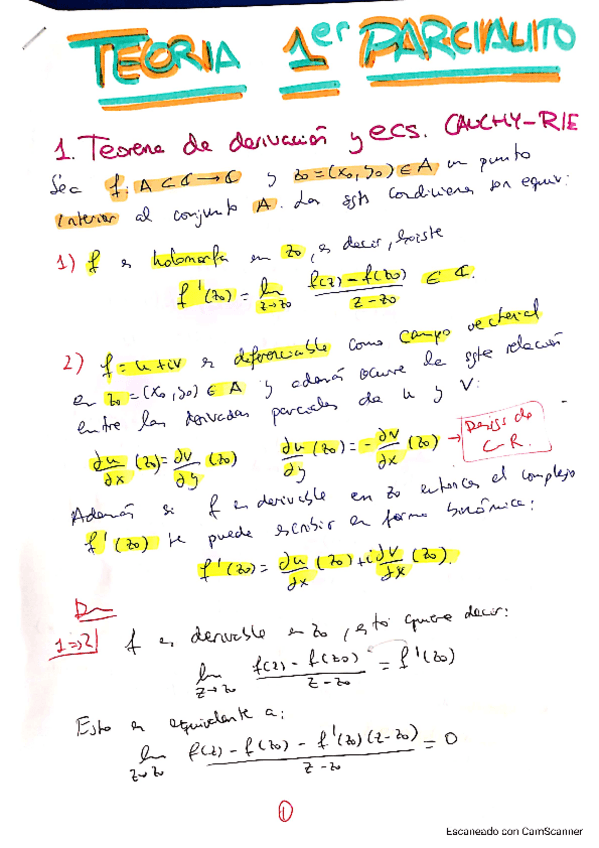 TEORIA 1er PARCIALITO
1. Teorema de derivación y ecs. CAUCHY-RIE
Sea f: A ⊂ ℂ → ℂ y z₀ = (x₀, y₀) ∈ A un punto
interior al conjunto A. Las sgts condiciones son equiv:
1) f es holomorfa en z₀, es decir, existe
f'(z₀) = lim z→z₀ (f(z) - f(z₀))/(z - z₀) ∈ ℂ.
2) f = u + iv es diferenciable como campo vectorial
en z₀ = (x₀, y₀) ∈ A y además ocurre la sgte relación
entre las derivadas parciales de u y v:
∂u/∂x (z₀) = ∂v/∂y (z₀) ∂u/∂y (z₀) = -∂v/∂x (z₀) → de
C-R.
Además si f es derivable en z₀ entonces el complejo
f'(z₀) se puede escribir en forma binómica:
f'(z₀) = ∂u/∂x (z₀) + i ∂v/∂x (z₀).
Dm
1⇒2 f es derivable en z₀, esto quiere decir:
lim z→z₀ (f(z) - f(z₀))/(z - z₀) = f'(z₀)
Esto es equivalente a:
lim z→z₀ (f(z) - f(z₀) - f'(z₀)(z - z₀))/(z - z₀) = 0
1
Escaneado con CamScanner